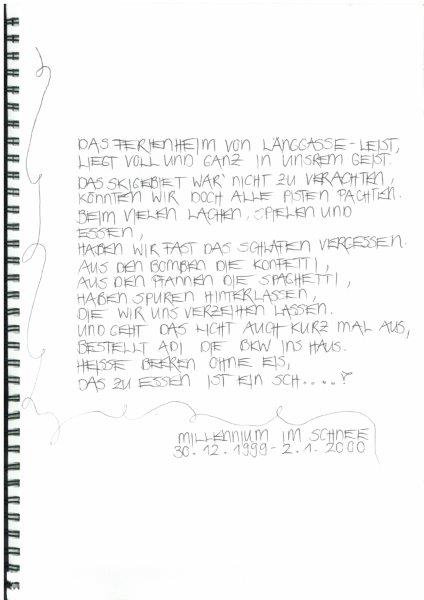 DAS FERIENHEIM VON LÄNGGASSE-LEIST,
LIEGT VOLL UND GANZ IN UNSREM GEIST.
DAS SKIGEBIET WÄR' NICHT ZU VERACHTEN,
KÖNNTEN WIR DOCH ALLE PISTEN PACHTEN.
BEIM VIELEN LACHEN, SPIELEN UND
ESSEN,
HABEN WIR FAST DAS SCHLAFEN VERGESSEN.
AUS DEN BOMBEN DIE KONFETTI,
AUS DEN PFANNEN DIE SPAGHETTI,
HABEN SPUREN HINTERLASSEN,
DIE WIR UNS VERZEIHEN LASSEN.
UND GEHT DAS LICHT AUCH KURZ MAL AUS,
BESTELLT ADI DIE BKW INS HAUS.
HEISSE BEEREN OHNE EIS,
DAS ZU ESSEN IST EIN SCH....?
MILLENNIUM IM SCHNEE
30.12.1999-2.1.2000